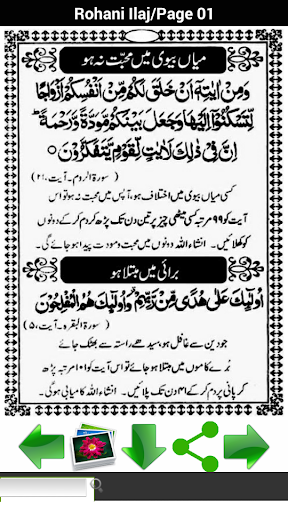 Rohani Ilaj/Page 01
میاں بیوی میں محبت نہ ہو
وَمِنْ اٰيٰتِهٖٓ اَنْ خَلَقَ لَكُمْ مِّنْ اَنْفُسِكُمْ اَزْوَاجًا
لِّتَسْكُنُوْٓا اِلَيْهَا وَجَعَلَ بَيْنَكُمْ مَّوَدَّةً وَّرَحْمَةً ؕ
اِنَّ فِيْ ذٰلِكَ لَاٰيٰتٍ لِّقَوْمٍ يَّتَفَكَّرُوْنَ ○
(سورۃ الروم۔آیت،۲۱)
کسی میاں بیوی میں اختلاف ہو، آپس میں محبت نہ ہو تو اس
آیت کو ۹۹ مرتبہ کسی میٹھی چیز پر تین دن تک پڑھ کر دم کر کے دونوں
کو کھلائیں۔ انشاء اللہ دونوں میں محبت ومودت پیدا ہو جائے گی۔
برائی میں مبتلا ہو
اُولٰٓئِكَ عَلٰى هُدًى مِّنْ رَّبِّهِمْ وَاُولٰٓئِكَ هُمُ الْمُفْلِحُوْنَ
(سورۃ البقرہ۔آیت،۵)
جو دین سے غافل ہو، سیدھے راستہ سے بھٹک جائے
بُرے کاموں میں مبتلا ہو جائے تو اس آیت کو ۱۰۱ مرتبہ پڑھ
کر پانی پر دم کر کے ۴۱ دن تک پلائیں۔ انشاء اللہ کامیابی ہوگی۔